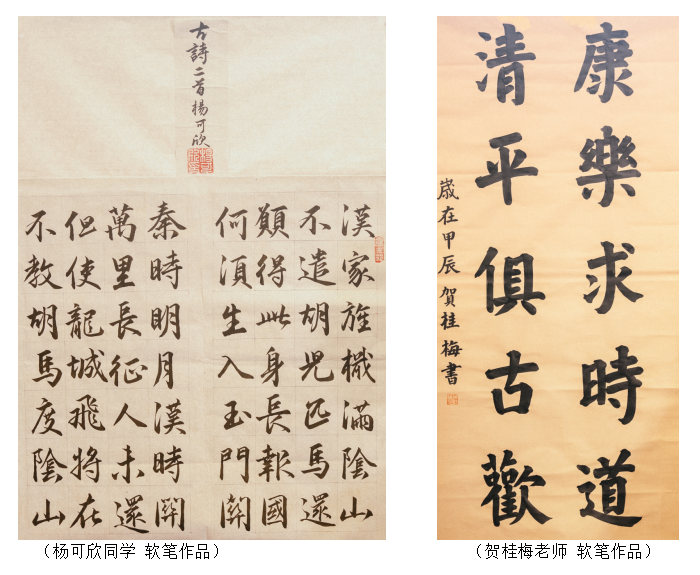 古詩二首楊可欣
漢家旌幟滿陰山
不遣胡兒匹馬還
願得此身長報國
何須生入玉門關
秦時明月漢時關
萬里長征人未還
但使龍城飛將在
不教胡馬度陰山
（杨可欣同学 软笔作品）
康樂求時道
清平俱古歡
歲在甲辰 賀桂梅書
（贺桂梅老师 软笔作品）